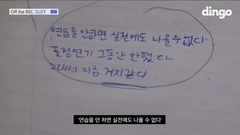 Off the REC. SUZY
dingo
연습을 안하면 실전에도 나올 수 없다.
표정연기 그동안 안했다
그래서 지금 거지같다.
'연습을 안 하면 실전에도 나올 수 없다'